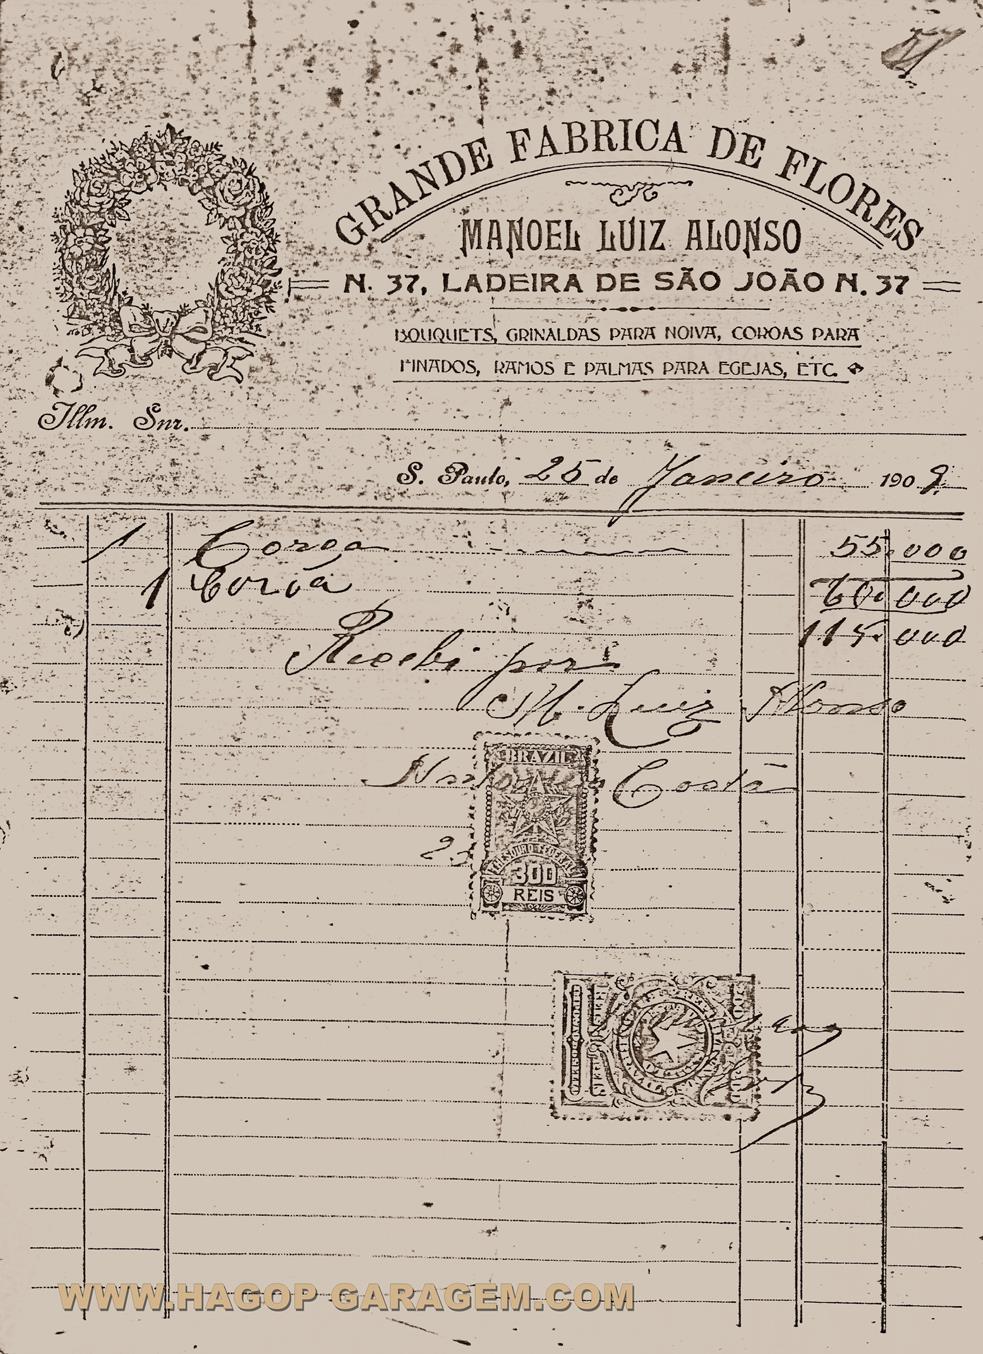 GRANDE FABRICA DE FLORES
MANOEL LUIZ ALONSO
N. 37, LADEIRA DE SÃO JOÃO N. 37
BOUQUETS, GRINALDAS PARA NOIVA, COROAS PARA
FINADOS, RAMOS E PALMAS PARA EGEJAS, ETC.
Illm. Snr.
S. Paulo, 25 de Janeiro 1909.
1 Coroa 55.000
1 Coroa 60.000
115.000
Recebi por
M. Luiz Alonso
Costa
BRAZIL
THESOURO FEDERAL
300
REIS
WWW.HAGOP-GARAGEM.COM